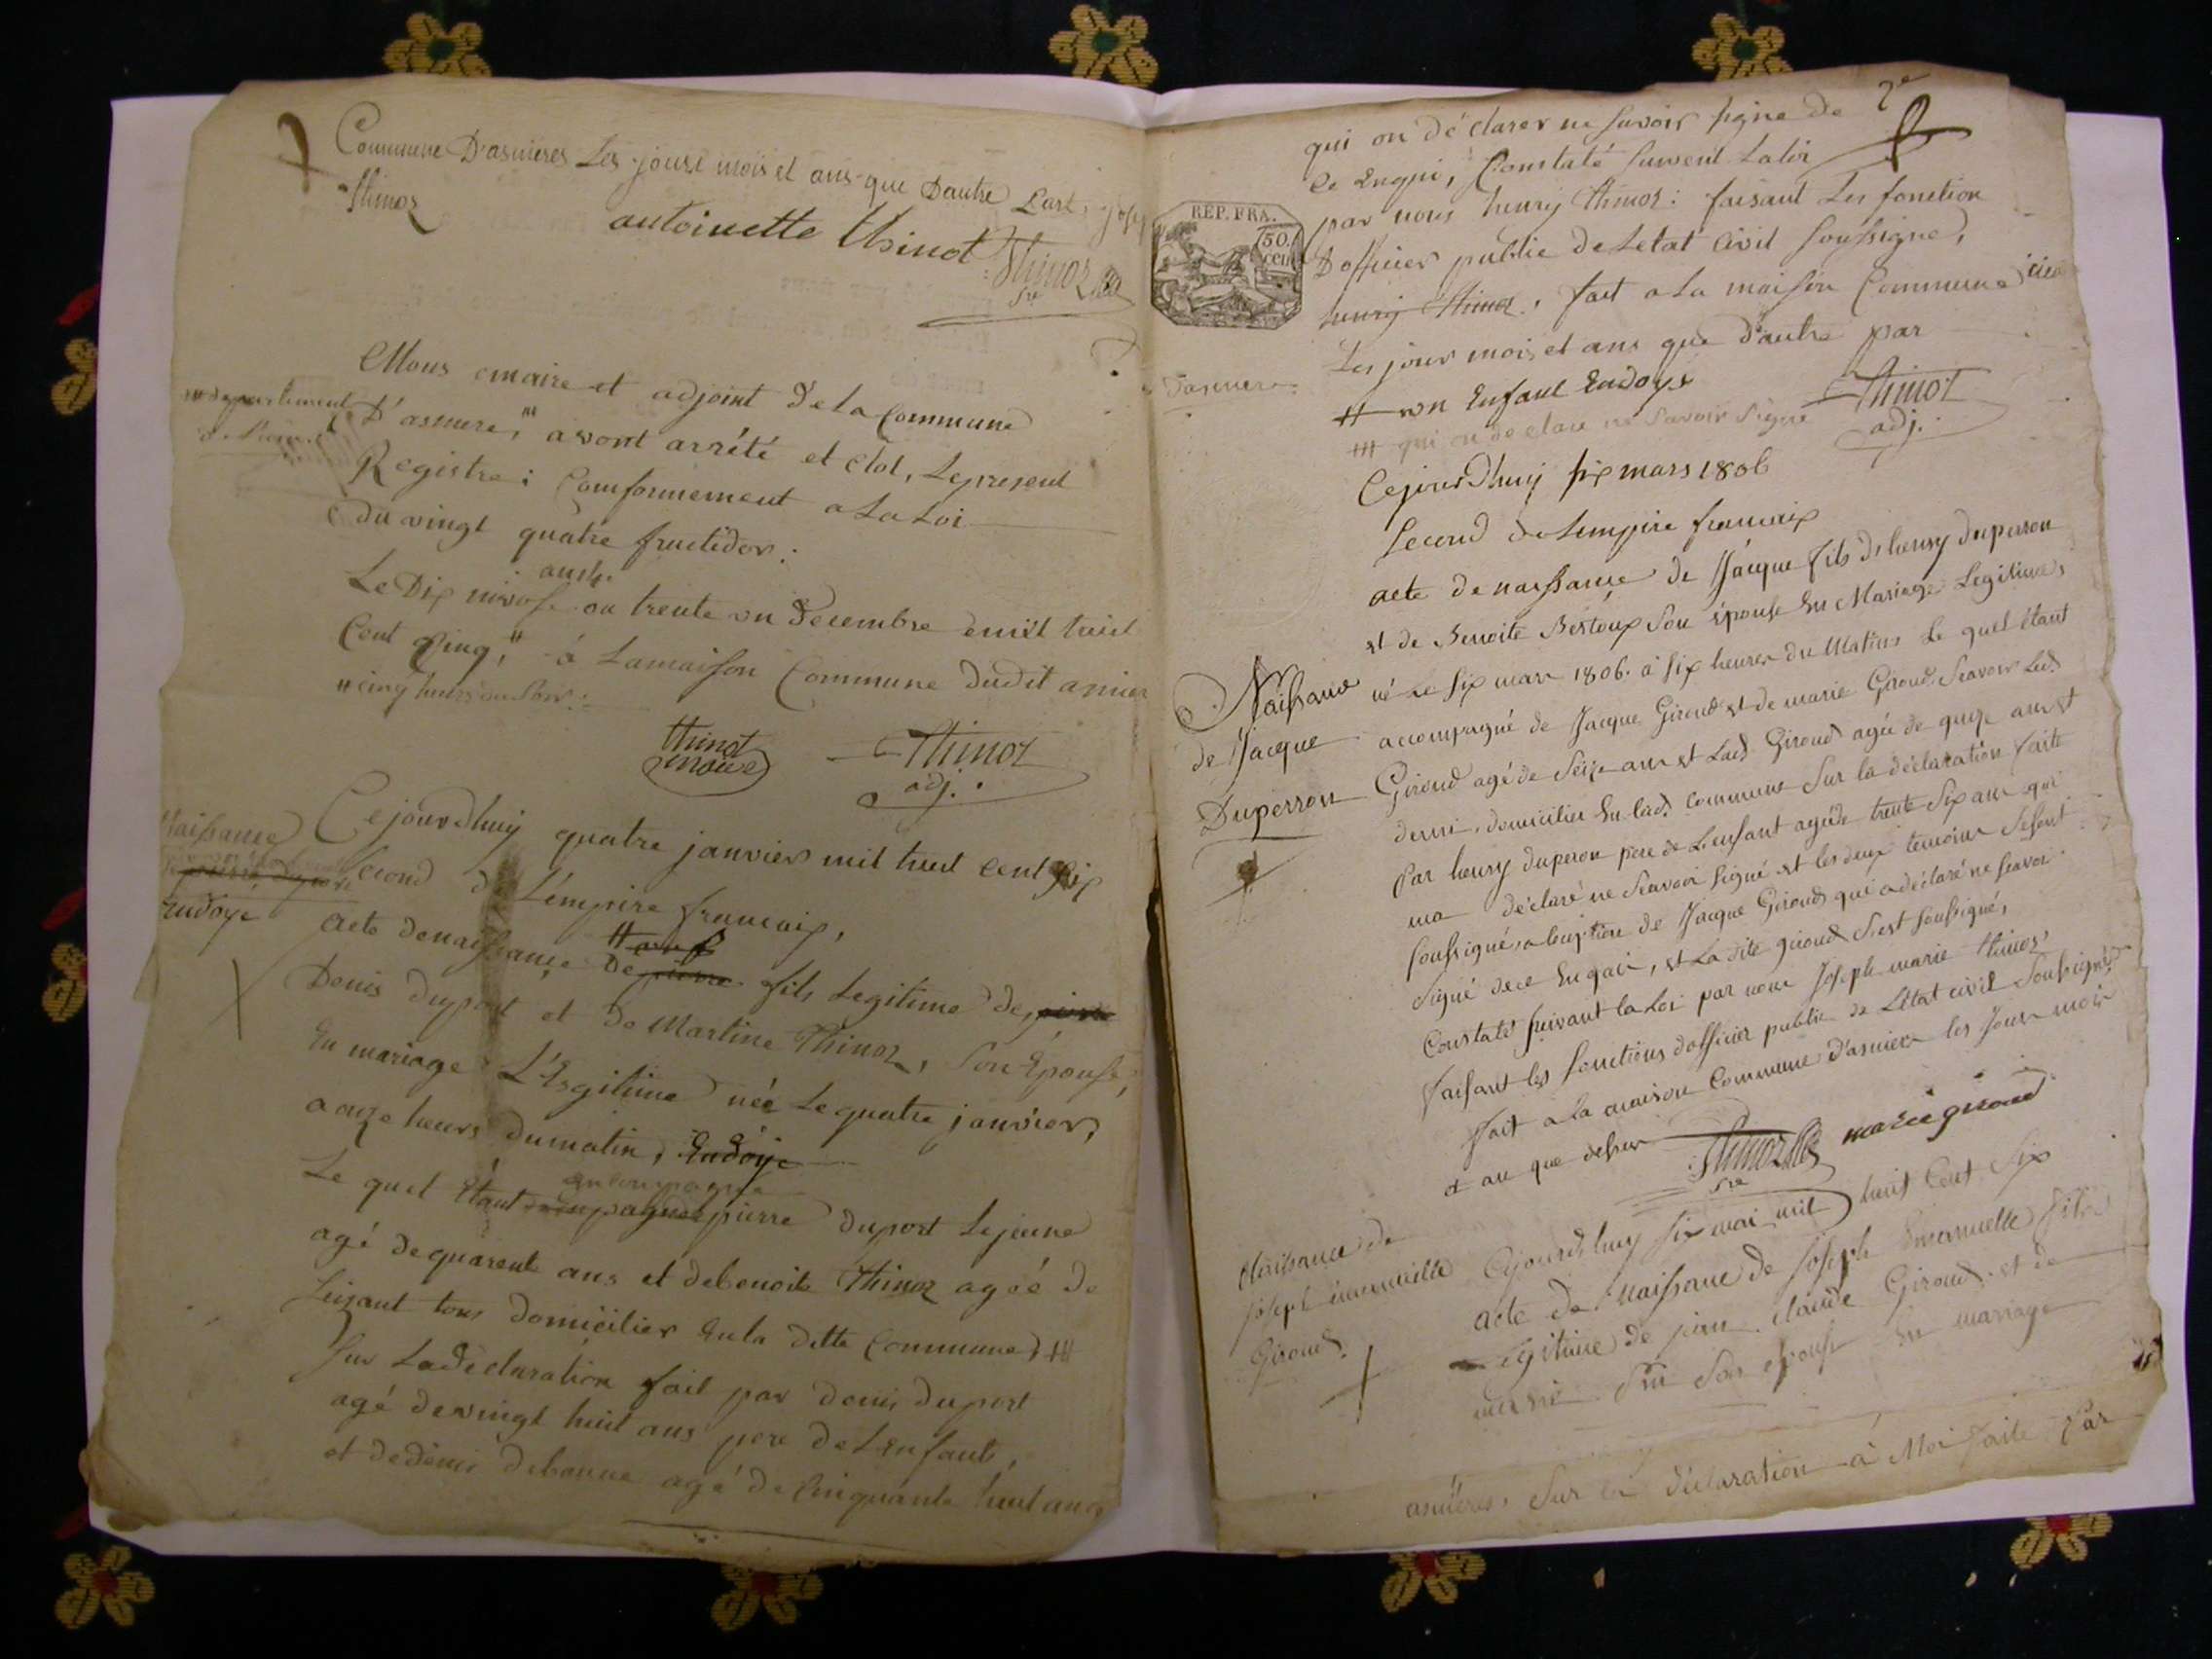 Commune D'asnieres Les jours mois et ans que Dautre Part,
Thinoz
antoinette thinot Thinoz
Sre
Nous maire et adjoint de la Commune
# departement
D'asniere, avont arrété et clot, Le present
Registre: Comformement a La Loi
du vingt quatre fructidor.
an 14.
Le Dix nivose ou trente un Decembre mil huit
Cent Cinq, # á La maison Commune dudit anier
# cinq heures du Soir.
thinot Thinoz
maire adj.
Naissance
Endoye
Cejourdhuy quatre janvier mil huit cent Six
Second de L'émpire francaix,
acte de naissance De pierre fils Legitime de pierre
Denis duport et de Martine Thinoz, Son Epouse,
En mariage L'Egitime née Le quatre janvier,
a onze heurs du matin, Endoye
Le quel Etant pierre duport Le jeune
agé de quarente ans et de benoite Thinoz agéé de
Seizant tous domicilier en la ditte Commune, ##
Sur La déclaration fait par denis duport
agé de vingt huit ans pere de L'enfant,
et de denis debonne agé de Cinquante huit ans
2e
qui on déclarer ne Savoir signe de
Ce Enqui, Constaté Suivent La loi
REP. FRA.
50. cen
par nous henry thinoz: faisant Les fonction
D'officier public de Letat Civil Soussigne,
henry thinoz, fait a La maison Commune
Dasniere
Les jour mois et ans que d'autre par
# un Enfant Endoye
## qui on declare ne Savoir Signe
Thinoz
adj.
Cejourdhuy six mars 1806
Second de Lempire francaix
acte de naissance de Jacque fils d'henry duperron
et de Benoite Bestoux Son épouse En Mariage Legitime,
Naissance
de Jacque
Duperron
né Le Six mars 1806. à Six heures du Matins Le quel étant
accompagné de Jacque Giroud et de marie Giroud, Seavoir Led.
Giroud agé de Seize ans et Lad. Giroud agée de quize ans et
demi, domicilier En lad. commune Sur la déclaration faite
Par henry duperon pere de L'enfant agé de trente Six ans qui
ma déclaré ne Seavoir Signé et les deux temoins Sesont
Soussigné, a léxeption de Jacque Giroud qui a déclaré ne Seavoir
Signé dece Enqui, et La dite giroud S'est Soussigné,
Constaté Suivant la Loi par nous Joseph marie thinoz,
faisant les fonctions d'officier public de L'Etat civil Soussigné,
fait a la maison Commune d'asniers les jour mois
et an que dessus Thinoz marie giroud
Sre
Naissance de
joseph émanuelle
Giroud.
Cejourdhuy Six mai mil huit Cent Six
acte de Naissance de joseph Emanuelle fils
Legitime de jean claude Giroud et de
Son epouse En mariage
asnieres, Sur la déclaration à Moi faite Par